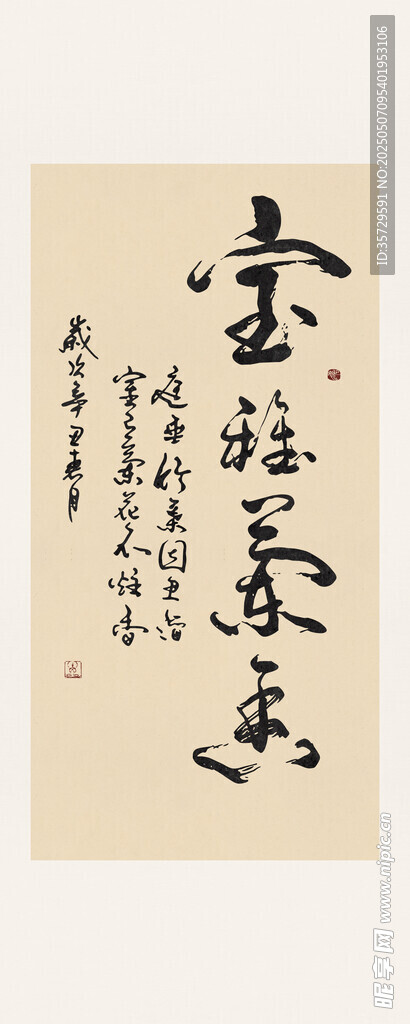 室雅兰香
庭垂竹叶因思酒
室有兰花不炷香
岁次辛丑春月
ID:35729591 NO:20250507095401953106
昵享网 www.nipic.cn